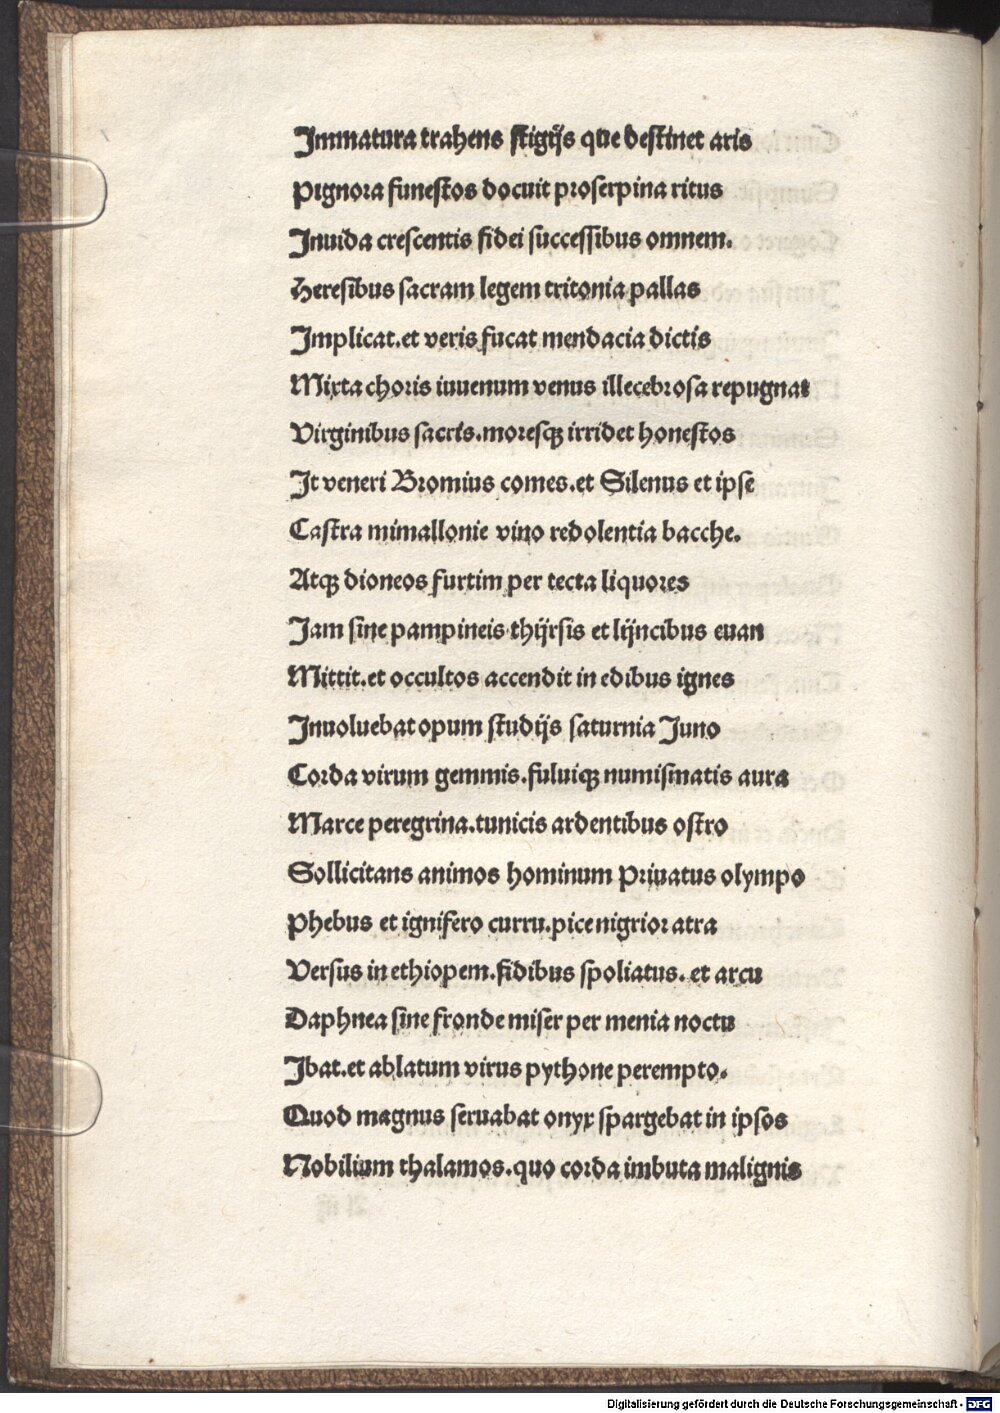 Immatura trahens stigijs que destinet aris
Pignora funestos docuit proserpina ritus
Inuida crescentis fidei successibus omnem.
Heresibus sacram legem tritonia pallas
Implicat.et veris fucat mendacia dictis
Mixta choris iuuenum venus illecebrosa repugnat
Virginibus sacris.moresqꝫ irridet honestos
It veneri Bromius comes.et Silenus et ipse
Castra mimallonie vino redolentia bacche.
Atqꝫ dioneos furtim per tecta liquores
Jam sine pampineis thijrsis et lijncibus euan
Mittit.et occultos accendit in edibus ignes
Inuoluebat opum studijs saturnia Juno
Corda virum gemmis.fuluiqꝫ numismatis aura
Marce peregrina.tunicis ardentibus ostro
Sollicitans animos hominum Priuatus olympo
Phebus et ignifero curru.pice nigrior atra
Versus in ethiopem.fidibus spoliatus. et arcu
Daphnea sine fronde miser per menia noctu
Ibat.et ablatum virus pythone perempto.
Quod magnus seruabat onyx spargebat in ipsos
Nobilium thalamos.quo corda imbuta malignis
Digitalisierung gefördert durch die Deutsche Forschungsgemeinschaft - DFG